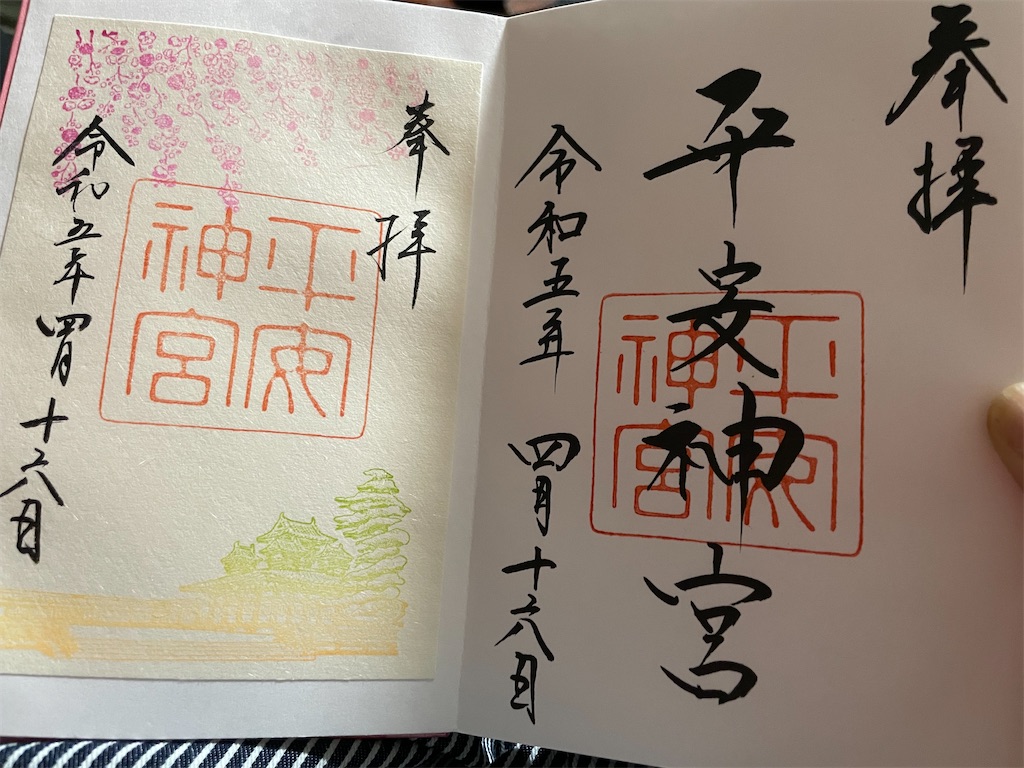 奉拝
平安神宮
平安神宮
令和五年四月十六日
奉拝
平安神宮
令和五年四月十六日